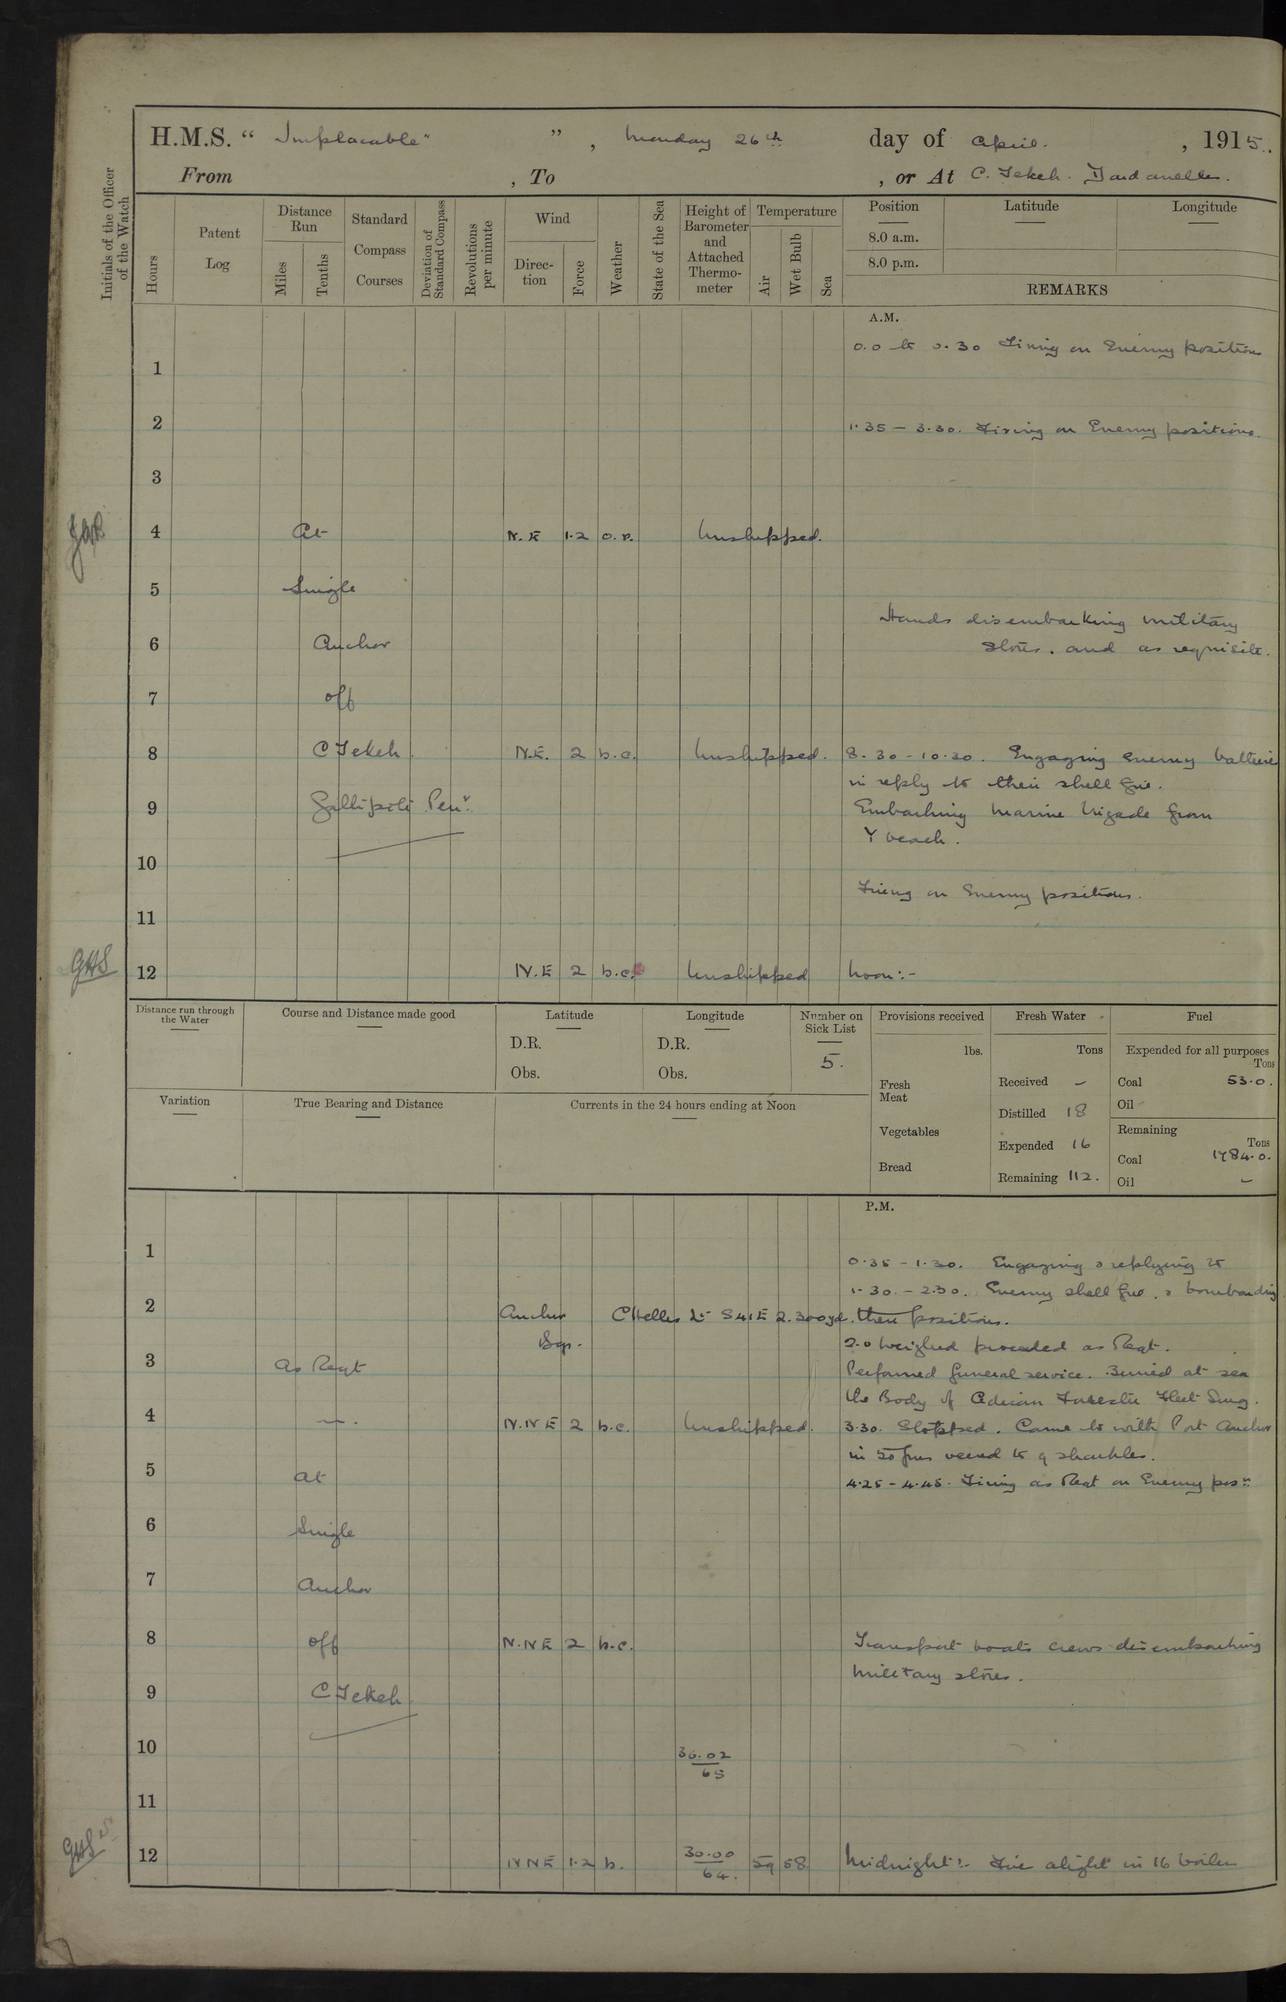 H.M.S. " Implacable " , Monday 26th day of April. , 1915.
From , To , or At C. Tekeh. Dardanelles.
Initials of the Officer of the Watch
Hours
Patent Log
Distance Run
Miles
Tenths
Standard Compass Courses
Deviation of Standard Compass
Revolutions per minute
Wind
Direction
Force
Weather
State of the Sea
Height of Barometer and Attached Thermometer
Temperature
Air
Wet Bulb
Sea
Position
8.0 a.m.
8.0 p.m.
Latitude
Longitude
REMARKS
A.M.
0.0 to 0.30 Firing on Enemy positions
1
2 1.35 – 3.30. Firing on Enemy positions.
3
4 At N.E 1.2 o.r. Unshipped.
5 Single
Hands disembarking military
6 Anchor stores. and as requisite.
7 off
8 C Tekeh. N.E. 2 b.c. Unshipped. 8.30 – 10.30. Engaging Enemy batteries
in reply to their shell fire.
9 Gallipoli Penr. Embarking Marine brigade from
Y beach.
10
Firing on Enemy positions.
11
GHS 12 N.E 2 b.c. Unshipped Noon:–
Distance run through the Water
Course and Distance made good
Latitude
D.R.
Obs.
Longitude
D.R.
Obs.
Number on Sick List
5.
Provisions received
lbs.
Fresh Meat
Vegetables
Bread
Fresh Water
Tons
Received –
Distilled 18
Expended 16
Remaining 112.
Fuel
Expended for all purposes
Tons
Coal 53.0.
Oil
Remaining
Tons
Coal 1784.0.
Oil –
Variation
True Bearing and Distance
Currents in the 24 hours ending at Noon
P.M.
1
0.35 – 1.30. Engaging & replying to
1.30. – 2.30. Enemy shell fire. & bombarding
2 Anchor C Helles Lt S41E 2.300yd. their positions.
Bgs. 2.0 Weighed proceeded as Reqt.
3 As Reqt Performed funeral service. Buried at sea
the Body of Adrian Fleet Surg.
4 N.NE 2 b.c. Unshipped. 3.30. Stopped. Came to with Port Anchor
in 50 fms veered to 9 shackles.
5 at 4.25 – 4.45. Firing as Reqt on Enemy posn
6 Single
7 Anchor
8 off N.NE 2 b.c. Transport boats crews disembarking
military stores.
9 C Tekeh
10 30.02
65
11
GHS 12 NNE 1.2 b. 30.00 59 58 Midnight:– Fire alight in 16 boilers
64.